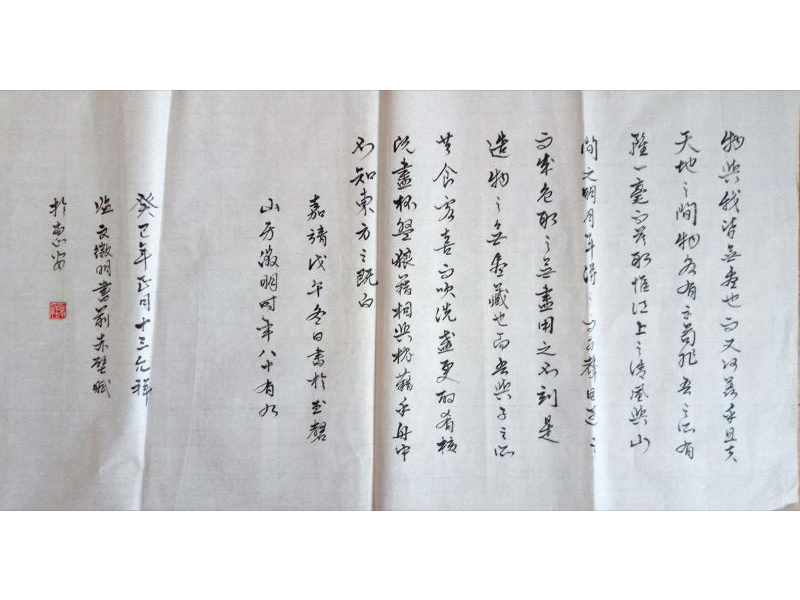 物與我皆無盡也而又何羡乎且夫
天地之間物各有主苟非吾之所有
雖一毫而莫取惟江上之清風與山
間之明月耳得之而為聲目遇之
而成色取之無盡用之不竭是
造物之無盡藏也而吾與子之所
共食客喜而笑洗盞更酌肴核
既盡杯盤狼藉相與枕藉乎舟中
不知東方之既白
嘉靖戊午冬日書於玉磬
山房徵明時年八十有九
癸巳年正月十三允祥
臨文徵明書前赤壁賦
於惠安